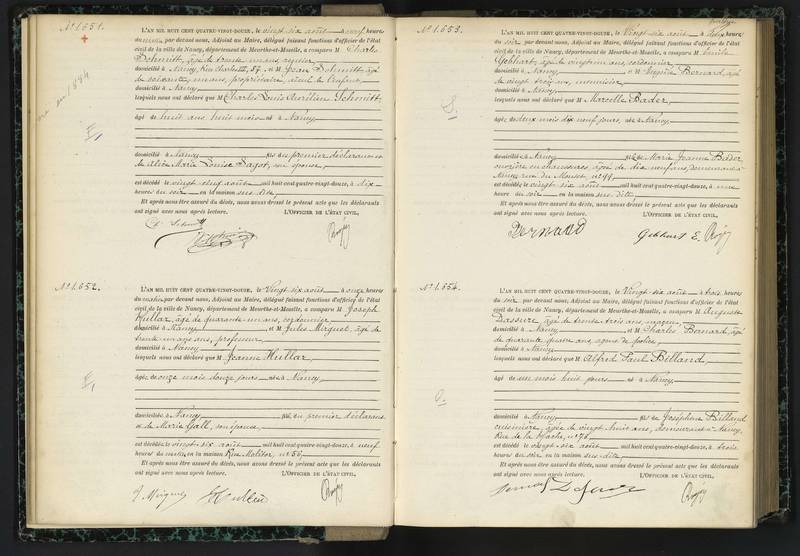 N° 1651.
L'AN MIL HUIT CENT QUATRE-VINGT-DOUZE, le vingt six août à neuf heures
du matin, par devant nous, Adjoint au Maire, délégué faisant fonctions d'officier de l'état
civil de la ville de Nancy, département de Meurthe-et-Moselle, a comparu M Charles
Schmitt, âgé de trente un ans,
domicilié à Nancy, Rue Charles III, et M Jean Schmitt, âgé
de soixante un ans, propriétaire, aïeul de l'enfant
domicilié à Nancy
lesquels nous ont déclaré que M Charles Louis Aurélien Schmitt,
âgé de huit ans huit mois né à Nancy,
domicilié à Nancy fils du premier déclarant et
de Alice Marie Louise Sagot, son épouse,
est décédé le vingt cinq août mil huit cent quatre-vingt-douze, à dix
heures du soir en la maison sus dite,
Et après nous être assuré du décès, nous avons dressé le présent acte que les déclarants
ont signé avec nous après lecture. L'OFFICIER DE L'ÉTAT CIVIL,
Ch. Schmitt
N° 1652.
L'AN MIL HUIT CENT QUATRE-VINGT-DOUZE, le Vingt six août à onze heures
du matin, par devant nous, Adjoint au Maire, délégué faisant fonctions d'officier de l'état
civil de la ville de Nancy, département de Meurthe-et-Moselle, a comparu M Joseph
Hullar, âgé de quarante un ans, cordonnier
domicilié à Nancy et M Jules Mirguet, âgé de
trente un ans, professeur
domicilié à Nancy
lesquels nous ont déclaré que M Jeanne Hullar,
âgée de onze mois douze jours née à Nancy,
domiciliée à Nancy fille du premier déclarant
et de Marie Gall, son épouse,
est décédée le vingt six août mil huit cent quatre-vingt-douze, à neuf
heures du matin en la maison Rue Molitor, n° 56
Et après nous être assuré du décès, nous avons dressé le présent acte que les déclarants
ont signé avec nous après lecture. L'OFFICIER DE L'ÉTAT CIVIL,
J. Mirguet
N° 1653.
L'AN MIL HUIT CENT QUATRE-VINGT-DOUZE, le Vingt six août à deux heures
du soir, par devant nous, Adjoint au Maire, délégué faisant fonctions d'officier de l'état
civil de la ville de Nancy, département de Meurthe-et-Moselle, a comparu M Emile
Gebhart, âgé de vingt un ans, cordonnier
domicilié à Nancy et M Eugène Bernard, âgé
de vingt trois ans, menuisier
domicilié à Nancy
lesquels nous ont déclaré que M Marcelle Bader,
âgée de deux mois dix neuf jours, née à Nancy,
domiciliée à Nancy fille de Marie Jeanne Bader,
ouvrière en chaussures, âgée de dix neuf ans, demeurant à
Nancy, rue du Montet, n° 99
est décédée le vingt six août mil huit cent quatre-vingt-douze, à une
heure du soir en la maison sus dite
Et après nous être assuré du décès, nous avons dressé le présent acte que les déclarants
ont signé avec nous après lecture. L'OFFICIER DE L'ÉTAT CIVIL,
Bernard Gebhart E.
N° 1654.
L'AN MIL HUIT CENT QUATRE-VINGT-DOUZE, le Vingt six août à trois heures
du soir, par devant nous, Adjoint au Maire, délégué faisant fonctions d'officier de l'état
civil de la ville de Nancy, département de Meurthe-et-Moselle, a comparu M Auguste
âgé de trente trois ans,
domicilié à Nancy et M Charles Bernard, âgé
de quarante quatre ans, agent de police,
domicilié à Nancy
lesquels nous ont déclaré que M Alfred Paul Billand,
âgé de un mois huit jours né à Nancy,
domicilié à Nancy fils de Joséphine Billand
cuisinière, âgée de vingt huit ans, demeurant à Nancy,
Rue de la Hache, n° 76,
est décédé le vingt six août mil huit cent quatre-vingt-douze, à trois
heures du soir en la maison sus-dite,
Et après nous être assuré du décès, nous avons dressé le présent acte que les déclarants
ont signé avec nous après lecture. L'OFFICIER DE L'ÉTAT CIVIL,